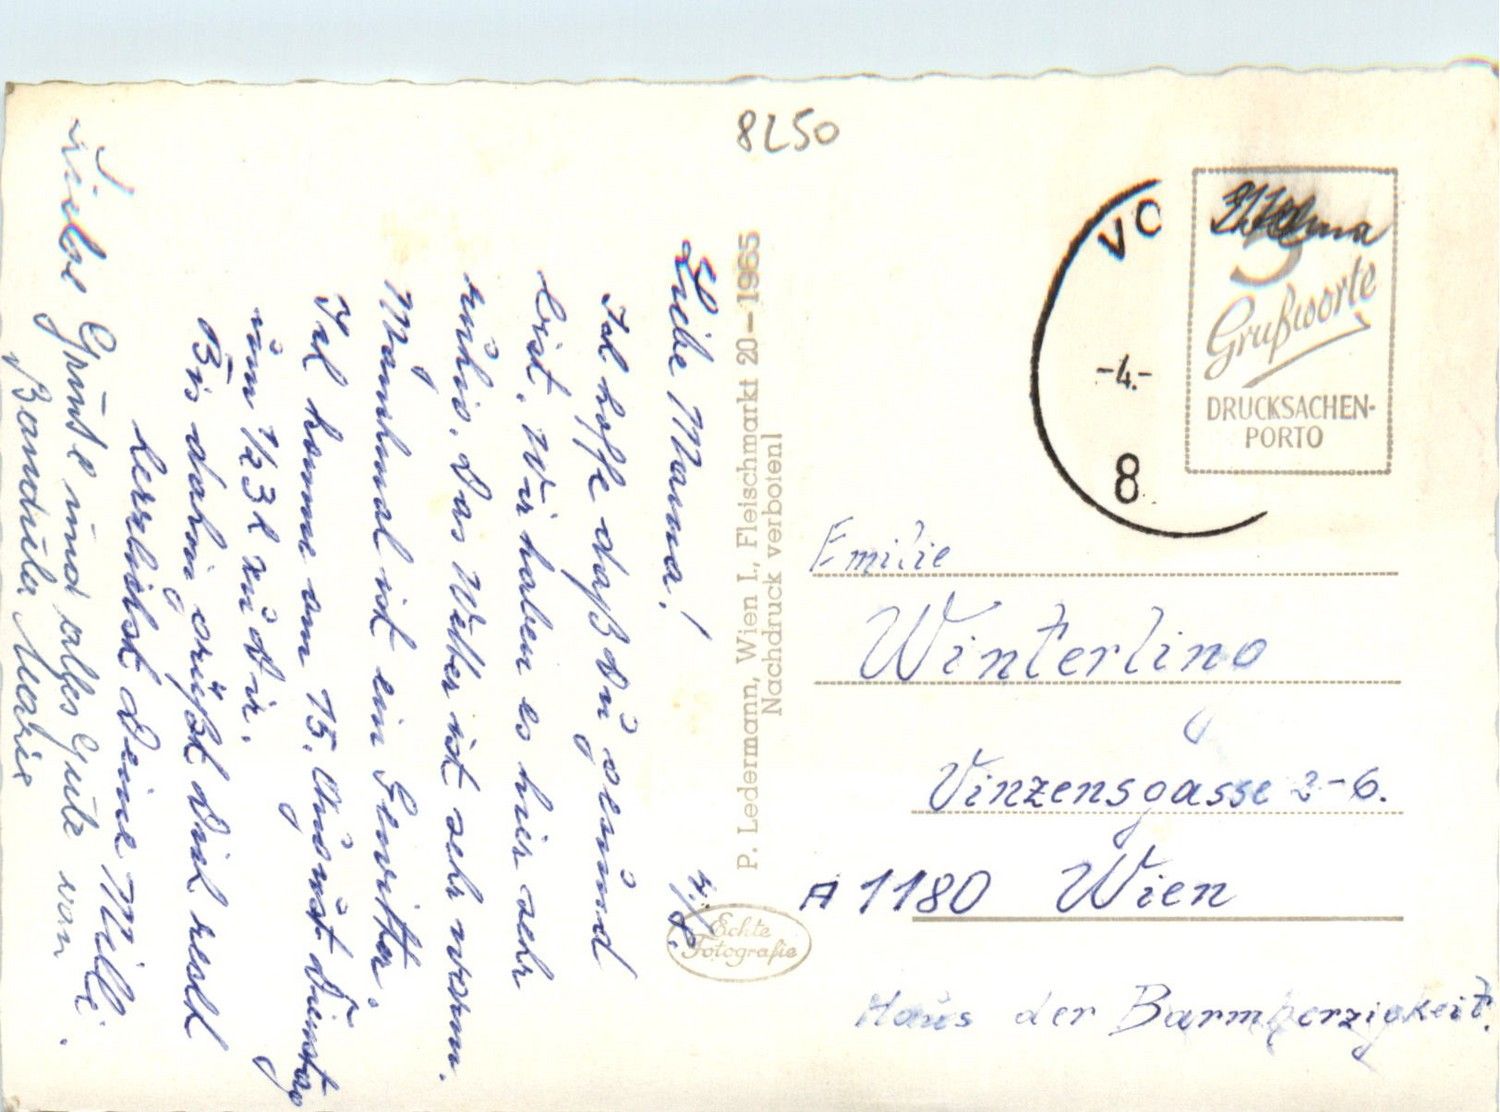 8250
4./8.
Liebe Mama!
Ich hoffe daß Du gesund
bist. Wir haben es hier sehr
ruhig. Das Wetter ist sehr warm.
Manchmal ist ein Gewitter.
Ich komme am 15. August Dienstag
um 1/2 3h zu Dir.
Bis dahin grüßt Dich recht
herzlichst Deine Milli.
Liebe Grüße und alles Gute von
Marie
P. Ledermann, Wien I., Fleischmarkt 20–1965
Nachdruck verboten!
Echte
Fotografie
VO
-4.-
8
5
Grußworte
DRUCKSACHEN-
PORTO
Emilie
Winterling
Vinzensgasse 2-6.
A 1180 Wien
Haus der Barmherzigkeit.